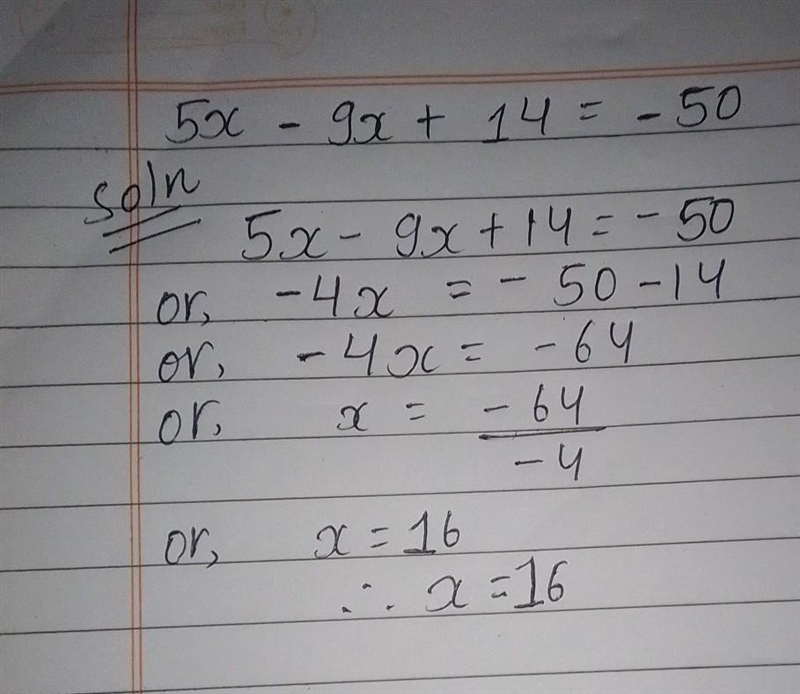 5x - 9x + 14 = - 50
soln
5x - 9x + 14 = - 50
or, -4x = - 50 - 14
or, -4x = -64
or, x = -64
-4
or, x = 16
∴ x = 16